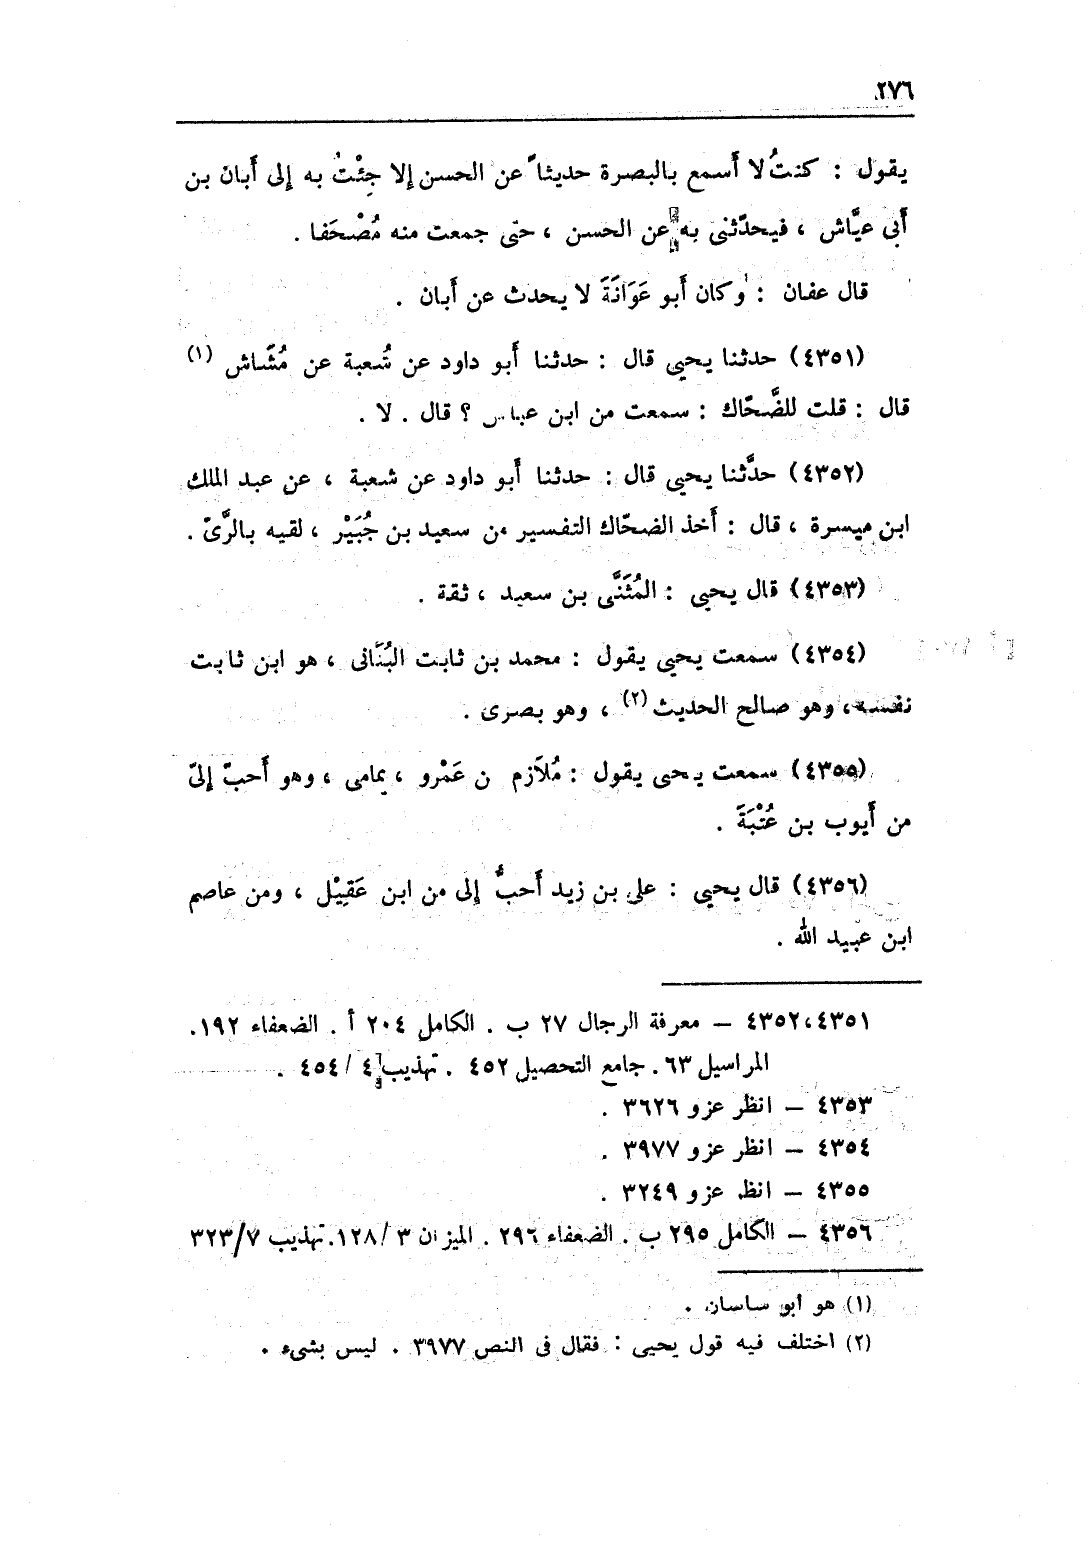 ٢٧٦
يقول : كنتُ لا أَسمع بالبصرة حديثاً عن الحسن إلا جِئْتُ به إلى أَبان بن
أَبى عيَّاش ، فيحدّثنى به عن الحسن ، حتى جمعت منه مُصْحَفا .
قال عفان : وكان أَبو عَوَانَةَ لا يحدث عن أَبان .
(٤٣٥١) حدثنا يحيى قال : حدثنا أَبو داود عن شُعبة عن مُشَاش (١)
قال : قلت للضَّحّاك : سمعت من ابن عباس ؟ قال . لا .
(٤٣٥٢) حدَّثنا يحيى قال : حدثنا أَبو داود عن شعبة ، عن عبد الملك
ابن ميسرة ، قال : أَخذ الضحّاك التفسير من سعيد بن جُبَيْر ، لقيه بالرَّىّ .
(٤٣٥٣) قال يحيى : المُثَنَّى بن سعيد ، ثقة .
(٤٣٥٤) سمعت يحيى يقول : محمد بن ثابت البُنَانى ، هو ابن ثابت
نفسه ، وهو صالح الحديث (٢) ، وهو بصرى .
(٤٣٥٥) سمعت يحيى يقول : مُلاَزم بن عَمْرو ، يمامى ، وهو أَحبّ إلىّ
من أَيوب بن عُتْبَةَ .
(٤٣٥٦) قال يحيى : على بن زيد أَحبُّ إلى من ابن عَقِيْل ، ومن عاصم
ابن عبيد الله .
٤٣٥١ ، ٤٣٥٢ – معرفة الرجال ٢٧ ب . الكامل ٢٠٤ أ . الضعفاء ١٩٢ .
المراسيل ٦٣ . جامع التحصيل ٤٥٢ . تهذيب ٤ / ٤٥٤ .
٤٣٥٣ – انظر عزو ٣٦٢٦ .
٤٣٥٤ – انظر عزو ٣٩٧٧ .
٤٣٥٥ – انظر عزو ٣٢٤٩ .
٤٣٥٦ – الكامل ٢٩٥ ب . الضعفاء ٢٩٦ . الميزان ٣ / ١٢٨ . تهذيب ٧ / ٣٢٣
(١) هو أبو ساسان .
(٢) اختلف فيه قول يحيى : فقال فى النص ٣٩٧٧ . ليس بشىء .